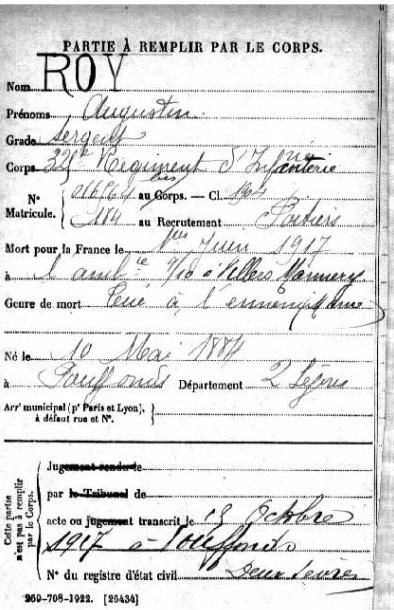 PARTIE À REMPLIR PAR LE CORPS.
Nom ROY
Prénoms Augustin.
Grade Sergent
Corps Regiment d'Infanterie
N° Matricule. { au Corps. — Cl.
184 au Recrutement Poitiers
Mort pour la France le 1er Juin 1917
à l'amb.ce 9/10 à Villers Marmery
Genre de mort Tué à l'ennemi Marne
Né le 10 Mai 1884
à Pouffonds Département 2 Sèvres
Arrt municipal (pr Paris et Lyon), à défaut rue et N°. }
Cette partie n'est pas à remplir par le Corps.
Jugement rendu le
par le Tribunal de
acte ou jugement transcrit le Octobre
1917 à Pouffonds
N° du registre d'état civil Deux Sèvres
260-708-1922. [26434]